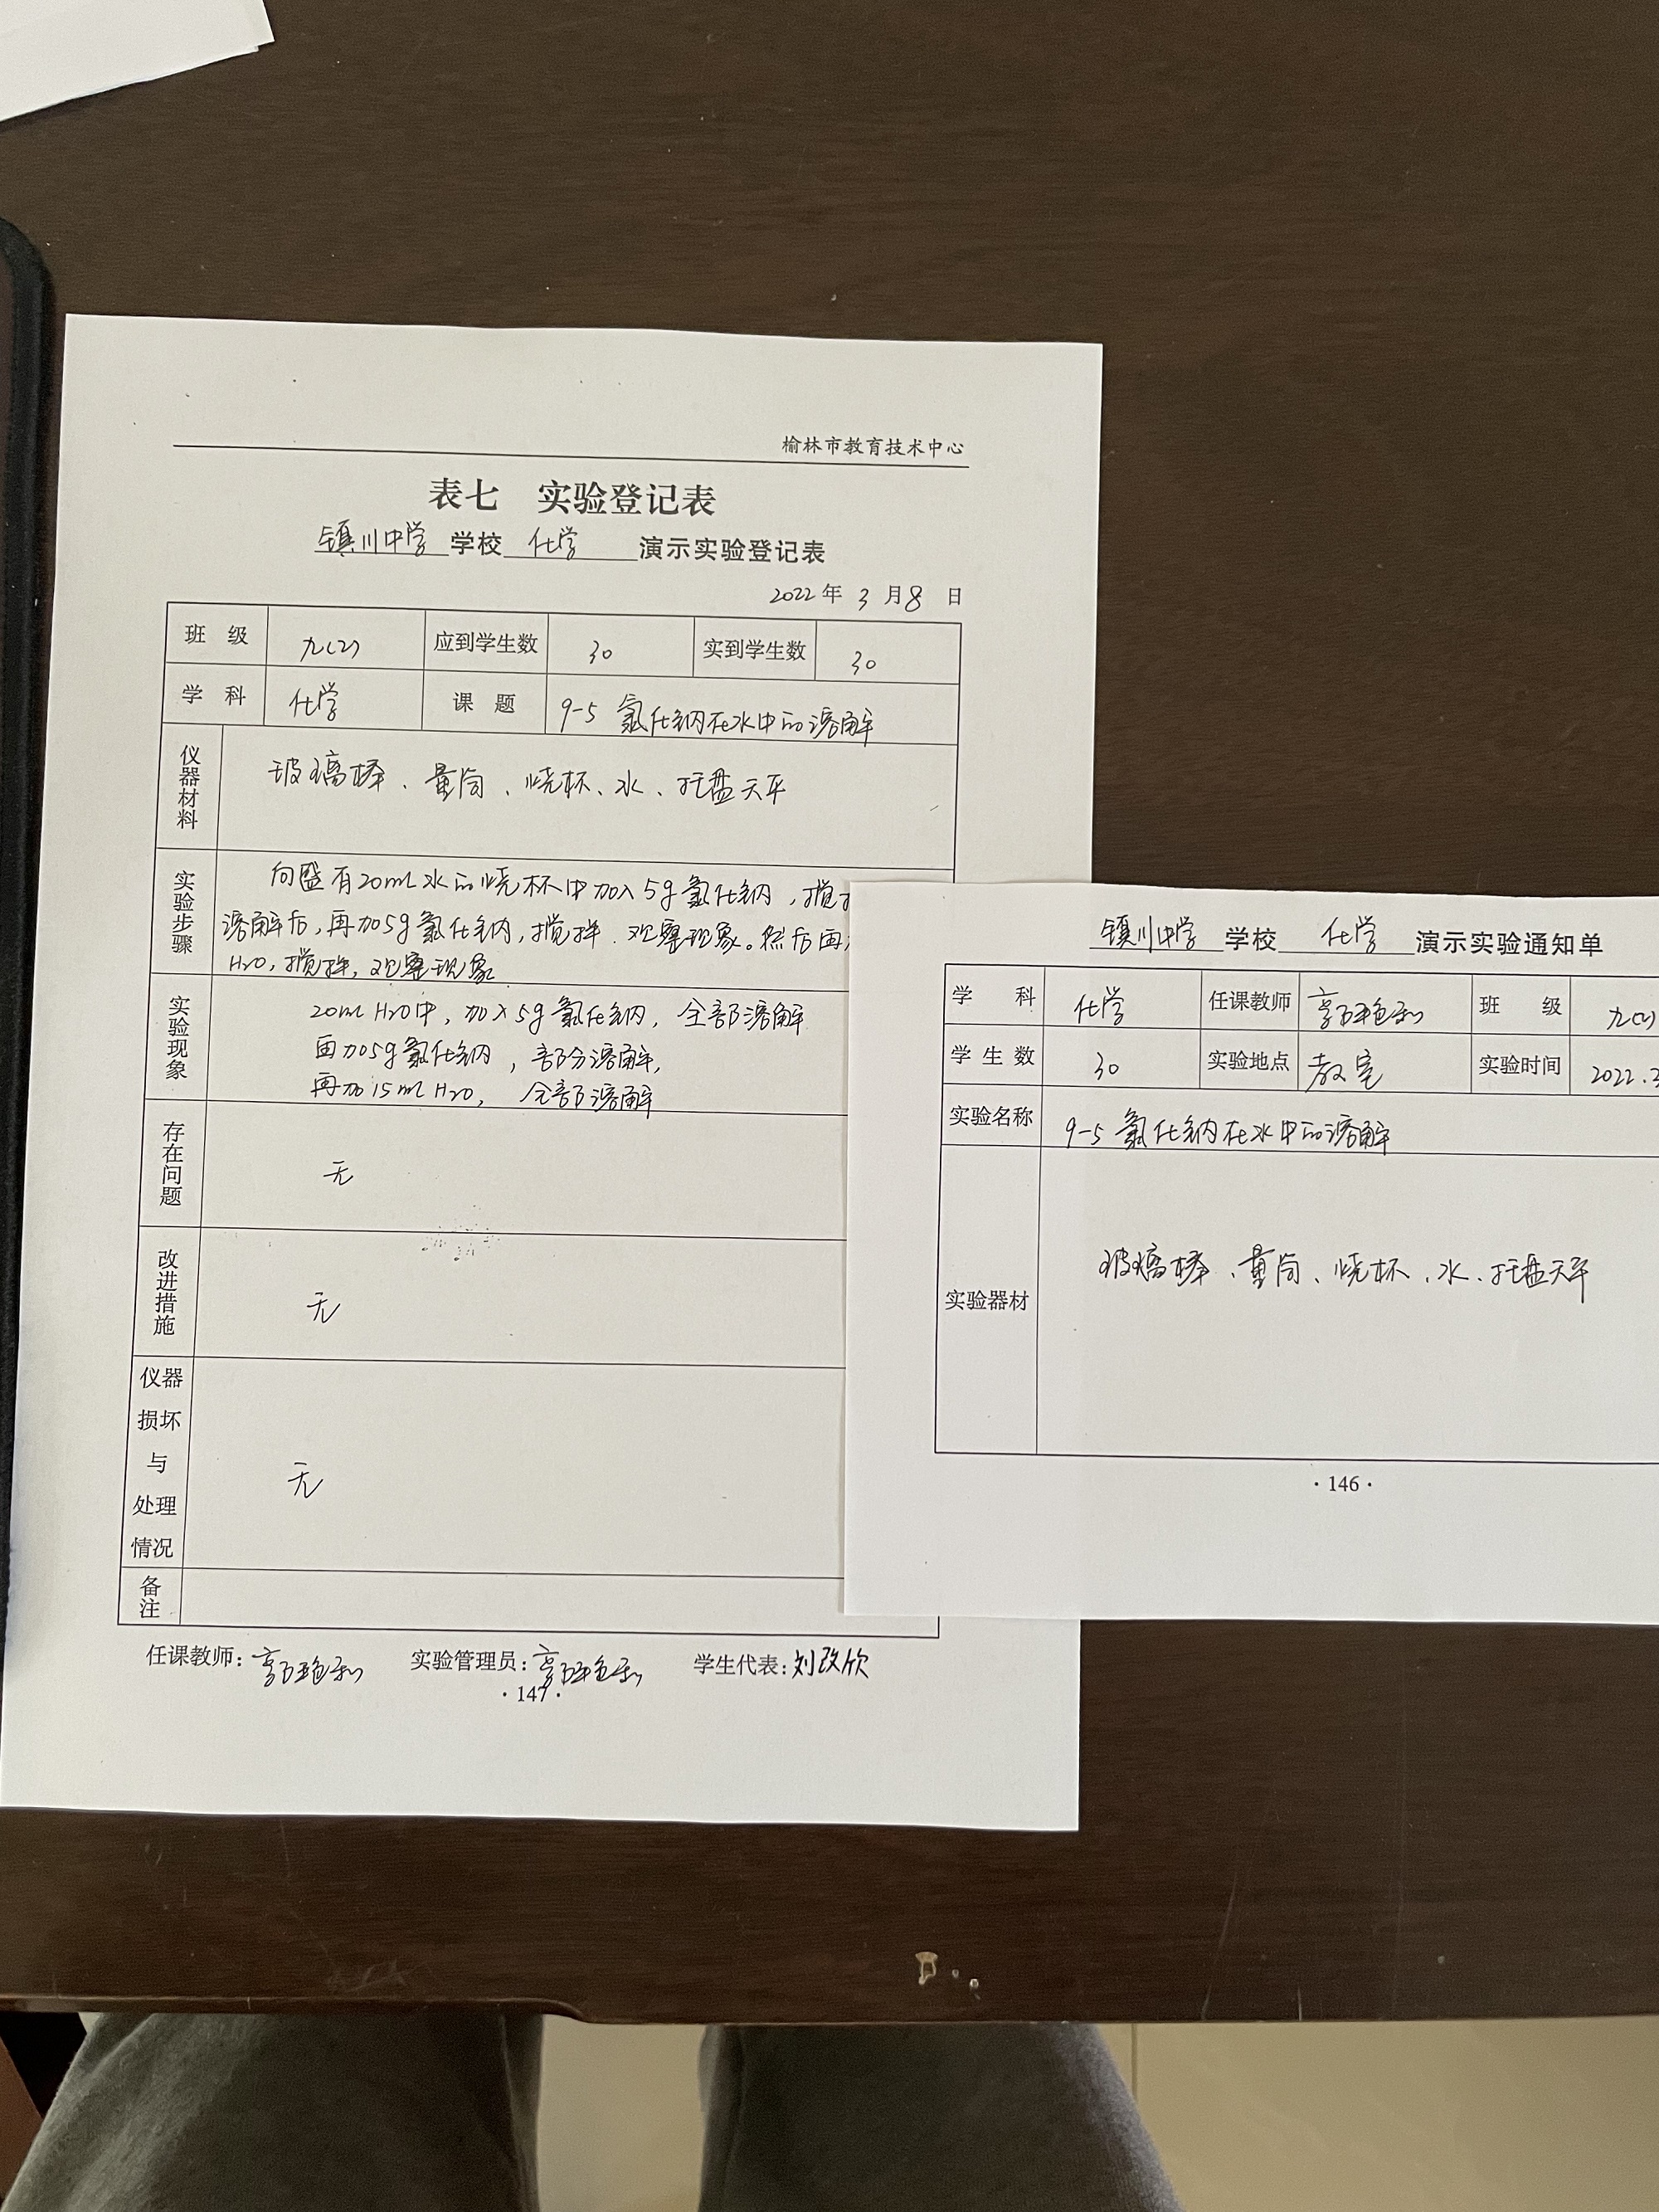 榆林市教育技术中心
表七 实验登记表
镇川中学 学校 化学 演示实验登记表
2022 年 3 月 8 日
班 级 九(2) 应到学生数 30 实到学生数 30
学 科 化学 课 题 9-5 氯化钠在水中的溶解
仪器材料 玻璃棒、量筒、烧杯、水、托盘天平
实验步骤
向盛有20mL水的烧杯中加入5g氯化钠,搅
溶解后,再加5g氯化钠,搅拌.观察现象。然后再
H2O,搅拌,观察现象
实验现象
20mL H2O中,加入5g氯化钠,全部溶解
再加5g氯化钠,部分溶解,
再加15mL H2O, 全部溶解
存在问题 无
改进措施 无
仪器
损坏
与
处理
情况
无
备注
任课教师: 实验管理员: 学生代表:刘改欣
·147·
镇川中学 学校 化学 演示实验通知单
学 科 化学 任课教师 班 级 九(2)
学生数 30 实验地点 教室 实验时间 2022.3
实验名称 9-5 氯化钠在水中的溶解
实验器材 玻璃棒、量筒、烧杯、水、托盘天平
·146·